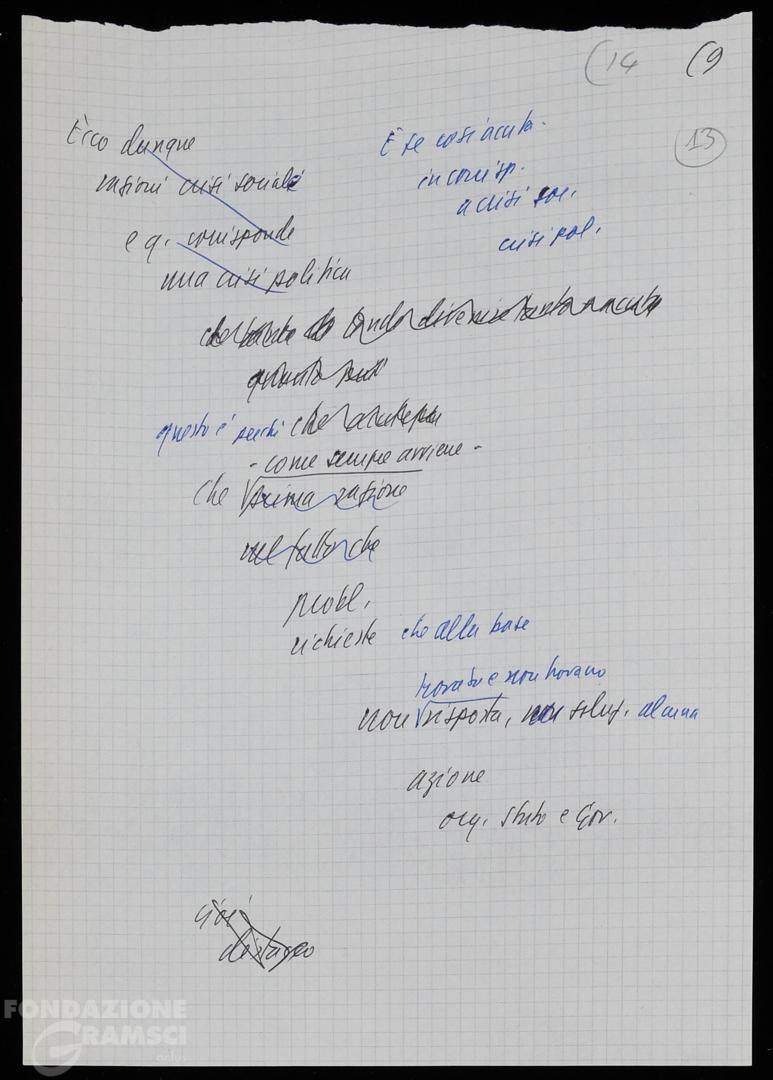 (14 (9
13
Ecco dunque
ragioni crisi sociale
e q. corrisponde
una crisi politica
E se così acuta.
in corrisp.
a crisi soc.
crisi pol.
quanto
questo è perché che
- come sempre avviene -
che prima ragione
nel fatto che
probl.
richieste che alla base
trovato e non trovano
non risposta, non soluz. alcuna
azione
org. Stato e Gov.
Cioè
distacco
FONDAZIONE
GRAMSCI
onlus